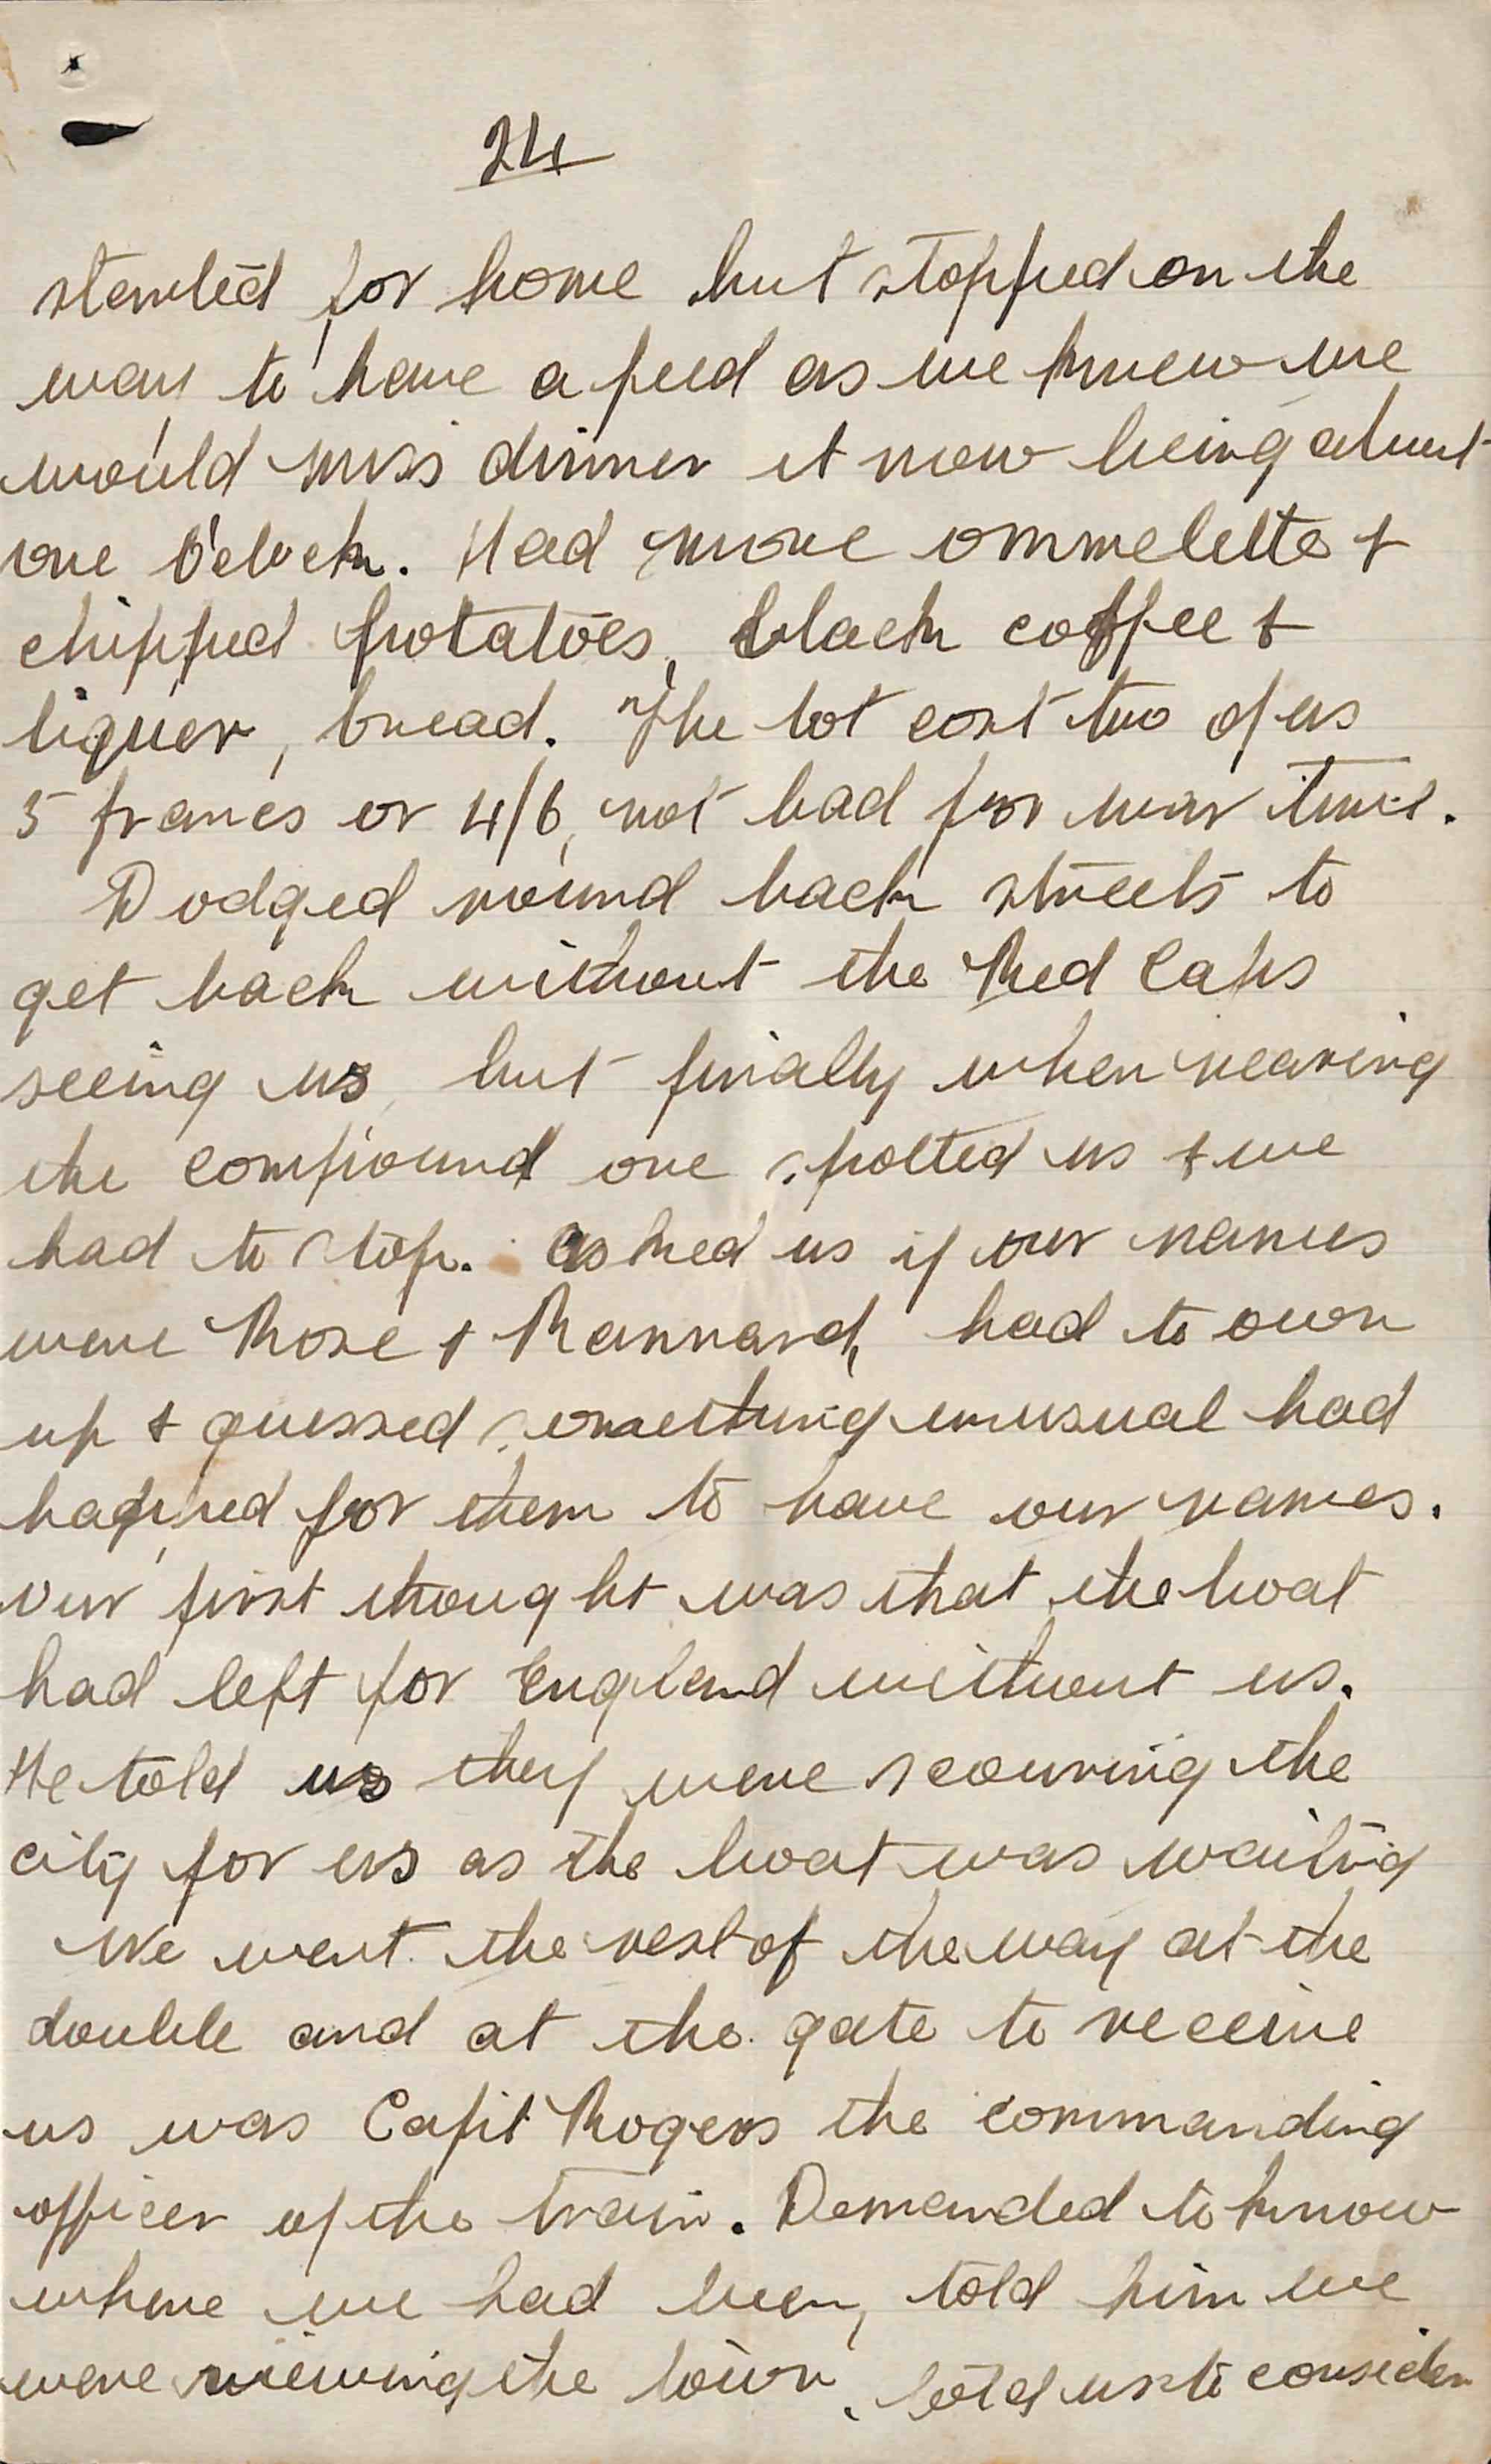 24
started for home but stopped on the
way to have a feed as we knew we
would miss dinner it now being about
one O'clock. Had more ommelette &
chipped potatoes, black coffee &
liquer, bread. The lot cost two of us
5 francs or 4/6, not bad for war time.
Dodged round back streets to
get back without the Red Caps
seeing us, but finally when nearing
the compound one spotted us & we
had to stop. asked us if our names
were Rose & Rannard, had to own
up & guessed something unusual had
happned for them to have our names.
Our first thought was that the boat
had left for England without us.
He told us they were scouring the
city for us as the boat was waiting
We went the rest of the way at the
double and at the gate to receive
us was Capt Rogers the commanding
officer of the train. Demanded to know
where we had been, told him we
were viewing the town, told us to consider